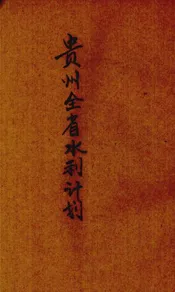 贵州全省水利计划